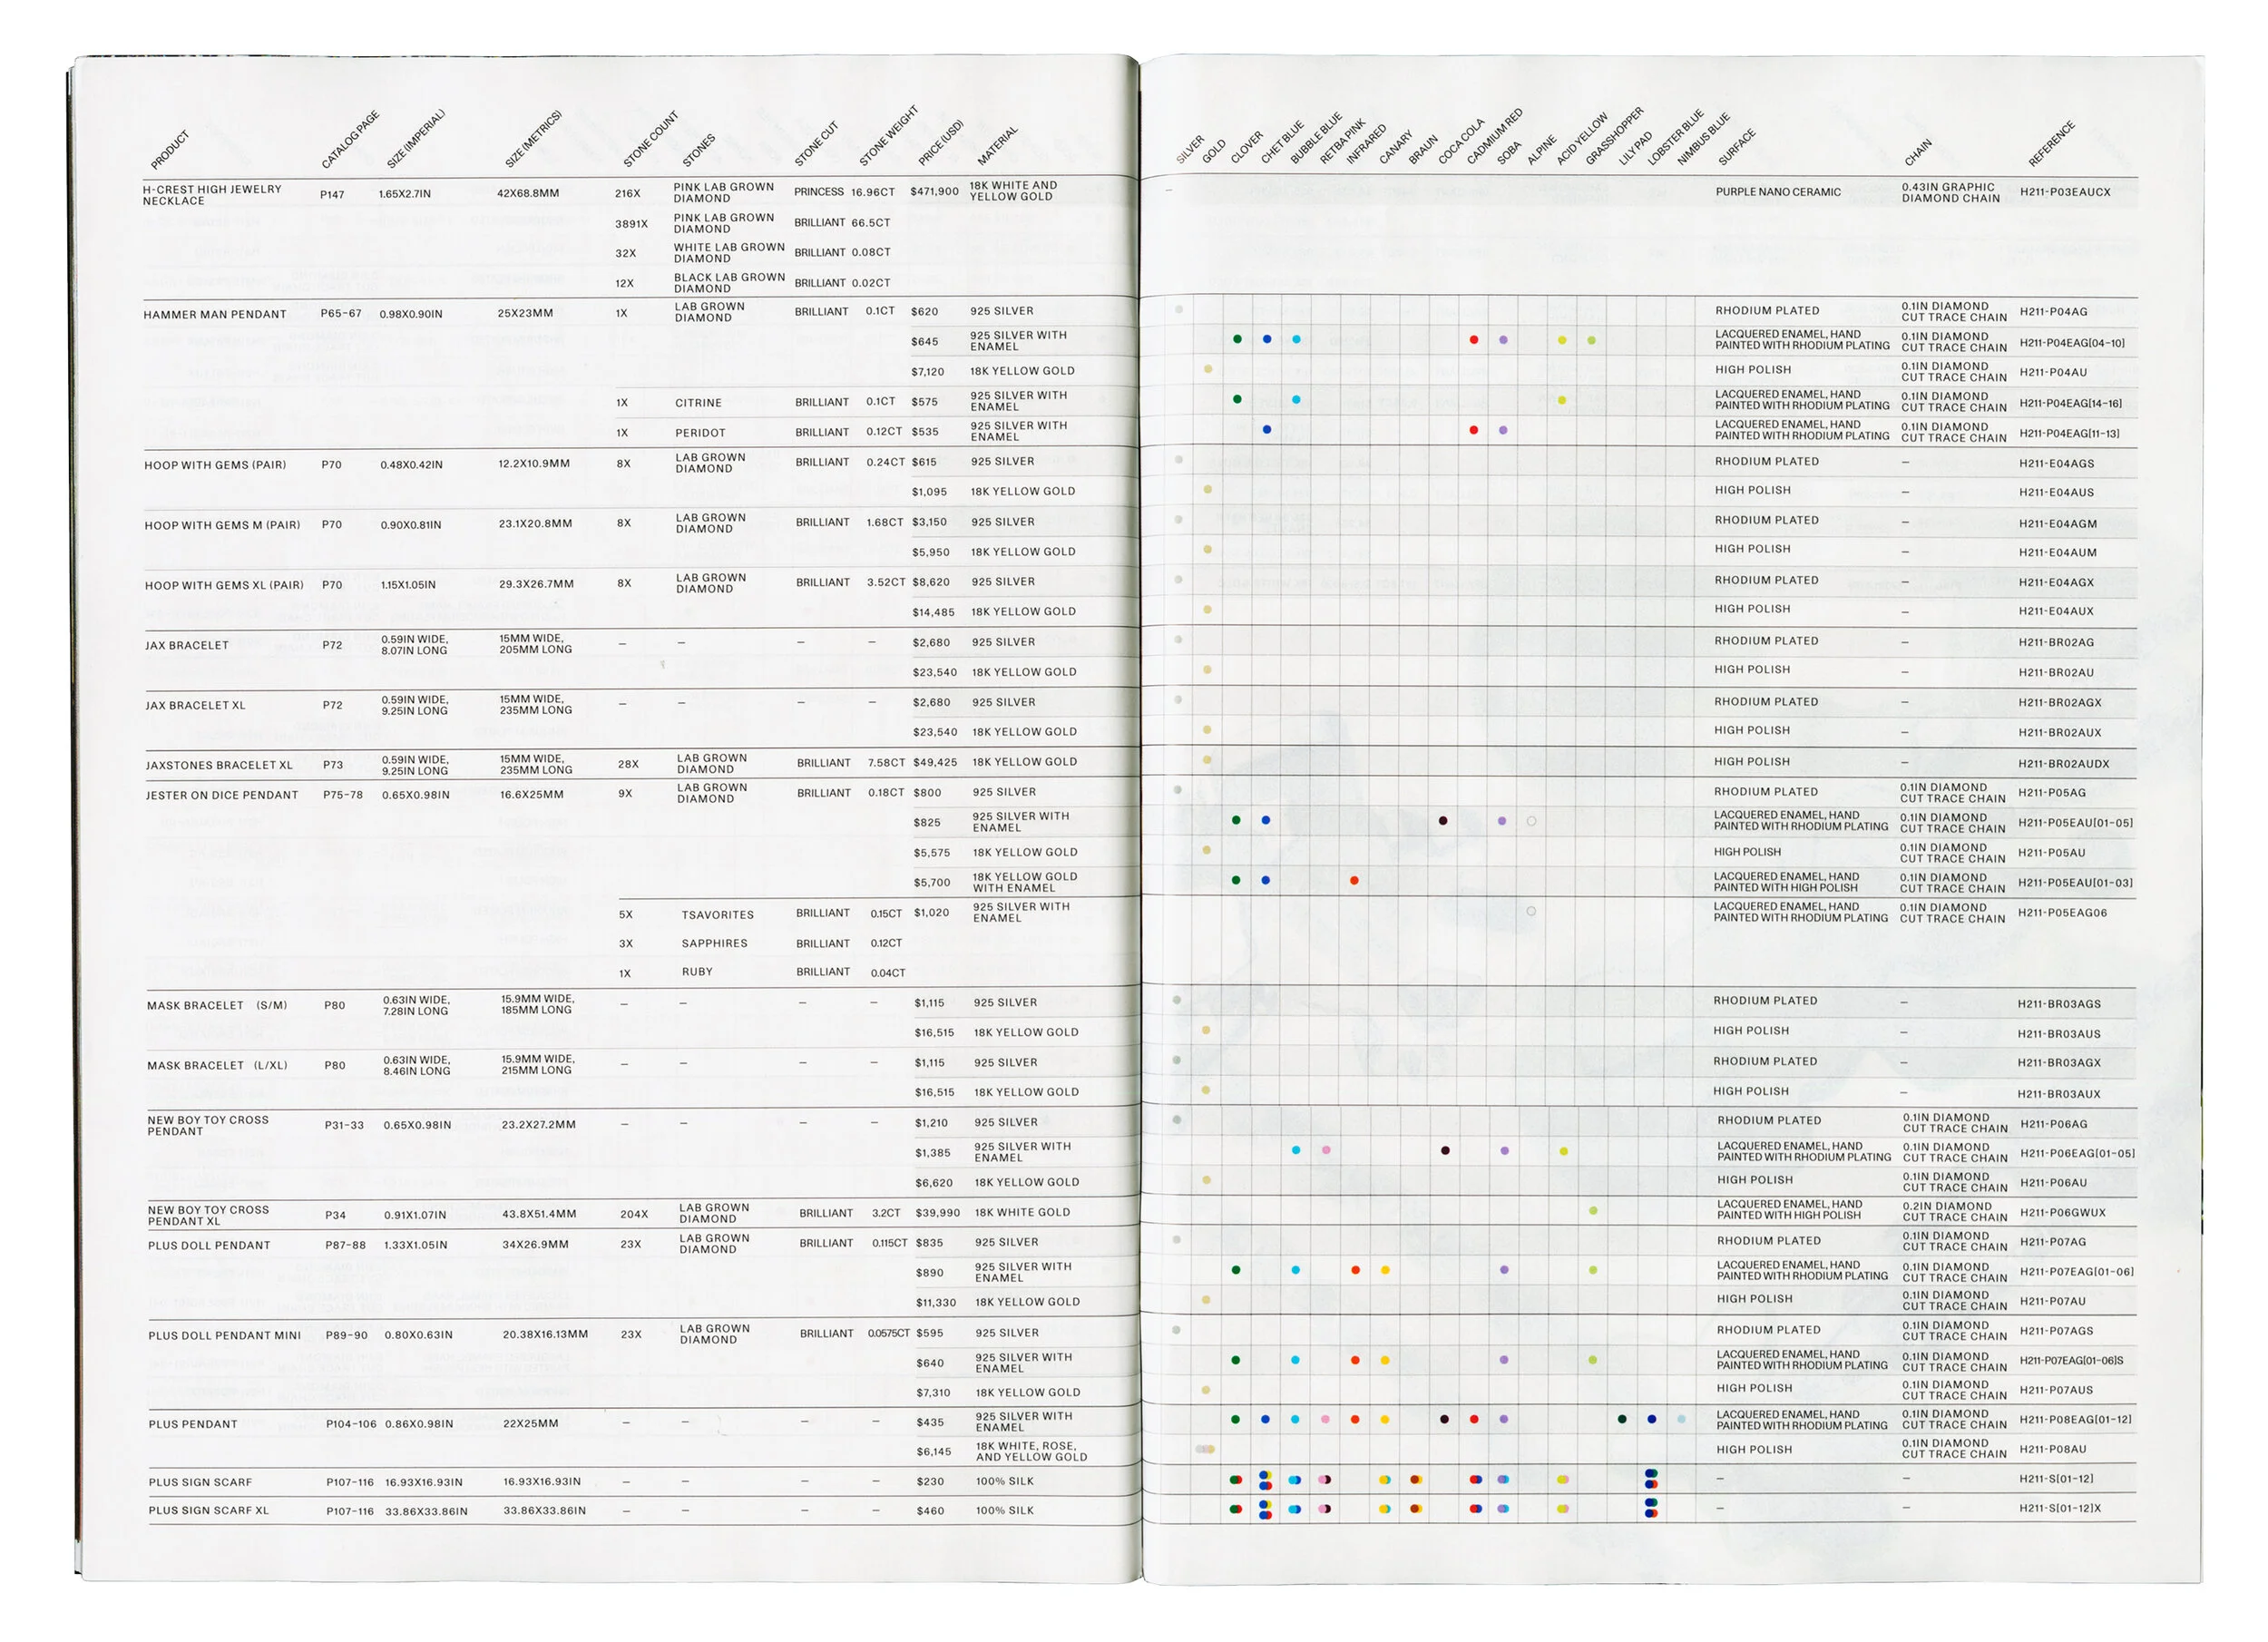 PRODUCT CATALOG PAGE SIZE (IMPERIAL) SIZE (METRICS) STONE COUNT STONES STONE CUT STONE WEIGHT PRICE (USD) MATERIAL SILVER GOLD CLOVER CHET BLUE BUBBLE BLUE RETBA PINK INFRARED CANARY BRAUN COCA COLA CADMIUM RED SOBA ALPINE ACID YELLOW GRASSHOPPER LILY PAD LOBSTER BLUE NIMBUS BLUE SURFACE CHAIN REFERENCE
H-CREST HIGH JEWELRY NECKLACE P147 1.65X2.7IN 42X68.8MM 216X PINK LAB GROWN DIAMOND PRINCESS 16.96CT $471,900 18K WHITE AND YELLOW GOLD – PURPLE NANO CERAMIC 0.43IN GRAPHIC DIAMOND CHAIN H211-P03EAUCX
3891X PINK LAB GROWN DIAMOND BRILLIANT 66.5CT
32X WHITE LAB GROWN DIAMOND BRILLIANT 0.08CT
12X BLACK LAB GROWN DIAMOND BRILLIANT 0.02CT
HAMMER MAN PENDANT P65-67 0.98X0.90IN 25X23MM 1X LAB GROWN DIAMOND BRILLIANT 0.1CT $620 925 SILVER RHODIUM PLATED 0.1IN DIAMOND CUT TRACE CHAIN H211-P04AG
$645 925 SILVER WITH ENAMEL LACQUERED ENAMEL, HAND PAINTED WITH RHODIUM PLATING 0.1IN DIAMOND CUT TRACE CHAIN H211-P04EAG[04-10]
$7,120 18K YELLOW GOLD HIGH POLISH 0.1IN DIAMOND CUT TRACE CHAIN H211-P04AU
1X CITRINE BRILLIANT 0.1CT $575 925 SILVER WITH ENAMEL LACQUERED ENAMEL, HAND PAINTED WITH RHODIUM PLATING 0.1IN DIAMOND CUT TRACE CHAIN H211-P04EAG[14-16]
1X PERIDOT BRILLIANT 0.12CT $535 925 SILVER WITH ENAMEL LACQUERED ENAMEL, HAND PAINTED WITH RHODIUM PLATING 0.1IN DIAMOND CUT TRACE CHAIN H211-P04EAG[11-13]
HOOP WITH GEMS (PAIR) P70 0.48X0.42IN 12.2X10.9MM 8X LAB GROWN DIAMOND BRILLIANT 0.24CT $615 925 SILVER RHODIUM PLATED – H211-E04AGS
$1,095 18K YELLOW GOLD HIGH POLISH – H211-E04AUS
HOOP WITH GEMS M (PAIR) P70 0.90X0.81IN 23.1X20.8MM 8X LAB GROWN DIAMOND BRILLIANT 1.68CT $3,150 925 SILVER RHODIUM PLATED – H211-E04AGM
$5,950 18K YELLOW GOLD HIGH POLISH – H211-E04AUM
HOOP WITH GEMS XL (PAIR) P70 1.15X1.05IN 29.3X26.7MM 8X LAB GROWN DIAMOND BRILLIANT 3.52CT $8,620 925 SILVER RHODIUM PLATED – H211-E04AGX
$14,485 18K YELLOW GOLD HIGH POLISH – H211-E04AUX
JAX BRACELET P72 0.59IN WIDE, 8.07IN LONG 15MM WIDE, 205MM LONG – – – – $2,680 925 SILVER RHODIUM PLATED – H211-BR02AG
$23,540 18K YELLOW GOLD HIGH POLISH – H211-BR02AU
JAX BRACELET XL P72 0.59IN WIDE, 9.25IN LONG 15MM WIDE, 235MM LONG – – – – $2,680 925 SILVER RHODIUM PLATED – H211-BR02AGX
$23,540 18K YELLOW GOLD HIGH POLISH – H211-BR02AUX
JAXSTONES BRACELET XL P73 0.59IN WIDE, 9.25IN LONG 15MM WIDE, 235MM LONG 28X LAB GROWN DIAMOND BRILLIANT 7.58CT $49,425 18K YELLOW GOLD HIGH POLISH – H211-BR02AUDX
JESTER ON DICE PENDANT P75-78 0.65X0.98IN 16.6X25MM 9X LAB GROWN DIAMOND BRILLIANT 0.18CT $800 925 SILVER RHODIUM PLATED 0.1IN DIAMOND CUT TRACE CHAIN H211-P05AG
$825 925 SILVER WITH ENAMEL LACQUERED ENAMEL, HAND PAINTED WITH RHODIUM PLATING 0.1IN DIAMOND CUT TRACE CHAIN H211-P05EAU[01-05]
$5,575 18K YELLOW GOLD HIGH POLISH 0.1IN DIAMOND CUT TRACE CHAIN H211-P05AU
$5,700 18K YELLOW GOLD WITH ENAMEL LACQUERED ENAMEL, HAND PAINTED WITH HIGH POLISH 0.1IN DIAMOND CUT TRACE CHAIN H211-P05EAU[01-03]
5X TSAVORITES BRILLIANT 0.15CT $1,020 925 SILVER WITH ENAMEL LACQUERED ENAMEL, HAND PAINTED WITH RHODIUM PLATING 0.1IN DIAMOND CUT TRACE CHAIN H211-P05EAG06
3X SAPPHIRES BRILLIANT 0.12CT
1X RUBY BRILLIANT 0.04CT
MASK BRACELET (S/M) P80 0.63IN WIDE, 7.28IN LONG 15.9MM WIDE, 185MM LONG – – – – $1,115 925 SILVER RHODIUM PLATED – H211-BR03AGS
$16,515 18K YELLOW GOLD HIGH POLISH – H211-BR03AUS
MASK BRACELET (L/XL) P80 0.63IN WIDE, 8.46IN LONG 15.9MM WIDE, 215MM LONG – – – – $1,115 925 SILVER RHODIUM PLATED – H211-BR03AGX
$16,515 18K YELLOW GOLD HIGH POLISH – H211-BR03AUX
NEW BOY TOY CROSS PENDANT P31-33 0.65X0.98IN 23.2X27.2MM – – – – $1,210 925 SILVER RHODIUM PLATED 0.1IN DIAMOND CUT TRACE CHAIN H211-P06AG
$1,385 925 SILVER WITH ENAMEL LACQUERED ENAMEL, HAND PAINTED WITH RHODIUM PLATING 0.1IN DIAMOND CUT TRACE CHAIN H211-P06EAG[01-05]
$6,620 18K YELLOW GOLD HIGH POLISH 0.1IN DIAMOND CUT TRACE CHAIN H211-P06AU
NEW BOY TOY CROSS PENDANT XL P34 0.91X1.07IN 43.8X51.4MM 204X LAB GROWN DIAMOND BRILLIANT 3.2CT $39,990 18K WHITE GOLD LACQUERED ENAMEL, HAND PAINTED WITH HIGH POLISH 0.2IN DIAMOND CUT TRACE CHAIN H211-P06GWUX
PLUS DOLL PENDANT P87-88 1.33X1.05IN 34X26.9MM 23X LAB GROWN DIAMOND BRILLIANT 0.115CT $835 925 SILVER RHODIUM PLATED 0.1IN DIAMOND CUT TRACE CHAIN H211-P07AG
$890 925 SILVER WITH ENAMEL LACQUERED ENAMEL, HAND PAINTED WITH RHODIUM PLATING 0.1IN DIAMOND CUT TRACE CHAIN H211-P07EAG[01-06]
$11,330 18K YELLOW GOLD HIGH POLISH 0.1IN DIAMOND CUT TRACE CHAIN H211-P07AU
PLUS DOLL PENDANT MINI P89-90 0.80X0.63IN 20.38X16.13MM 23X LAB GROWN DIAMOND BRILLIANT 0.0575CT $595 925 SILVER RHODIUM PLATED 0.1IN DIAMOND CUT TRACE CHAIN H211-P07AGS
$640 925 SILVER WITH ENAMEL LACQUERED ENAMEL, HAND PAINTED WITH RHODIUM PLATING 0.1IN DIAMOND CUT TRACE CHAIN H211-P07EAG[01-06]S
$7,310 18K YELLOW GOLD HIGH POLISH 0.1IN DIAMOND CUT TRACE CHAIN H211-P07AUS
PLUS PENDANT P104-106 0.86X0.98IN 22X25MM – – – – $435 925 SILVER WITH ENAMEL LACQUERED ENAMEL, HAND PAINTED WITH RHODIUM PLATING 0.1IN DIAMOND CUT TRACE CHAIN H211-P08EAG[01-12]
$6,145 18K WHITE, ROSE, AND YELLOW GOLD HIGH POLISH 0.1IN DIAMOND CUT TRACE CHAIN H211-P08AU
PLUS SIGN SCARF P107-116 16.93X16.93IN 16.93X16.93IN – – – – $230 100% SILK – – H211-S[01-12]
PLUS SIGN SCARF XL P107-116 33.86X33.86IN 33.86X33.86IN – – – – $460 100% SILK – – H211-S[01-12]X